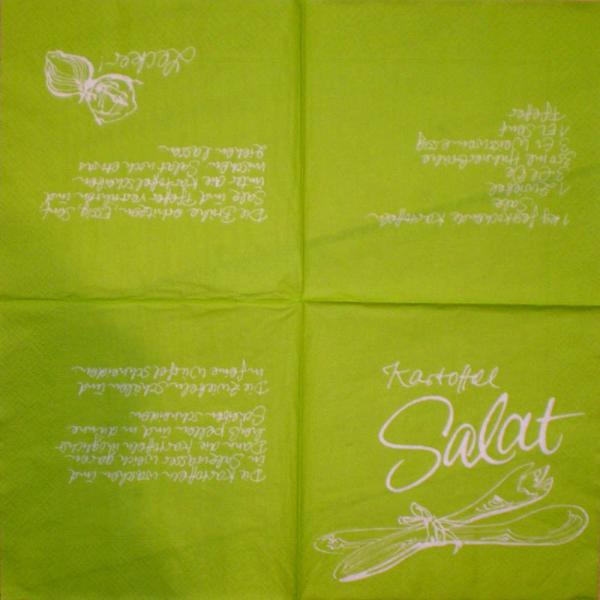 Kartoffel
Salat
1 kg festkochende Kartoffeln
Salz
1 Zwiebel
3 El Öl
350 ml Hühnerbrühe
3 El Weissweinessig
1 El Senf
Pfeffer
Die Kartoffeln waschen und
in Salzwasser weich garen.
Dann die Kartoffeln möglichst
heiß pellen und in dünne
Scheiben schneiden.
Die Zwiebeln schälen und
in feine Würfel schneiden.
Die Brühe erhitzen. Essig, Senf
Salz und Pfeffer verrühren und
unter die Kartoffelscheiben
mischen. Salat noch etwas
ziehen lassen.
Lecker!